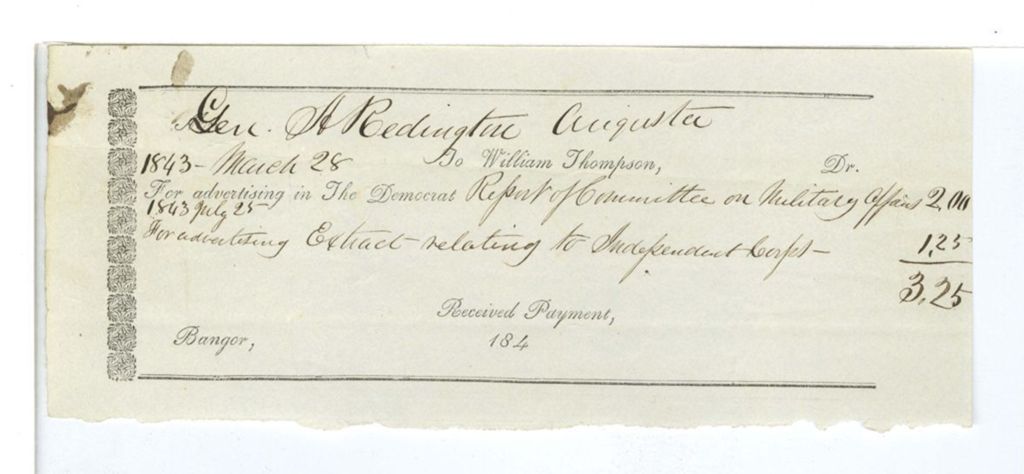 Gen. A Redington Augusta
1843 - March 28 To William Thompson, Dr.
For advertising in The Democrat Report of Committee on Military Affairs 2,00
1843 July 25
For advertising Extract relating to Independent Corps - 1,25
3,25
Received Payment,
Bangor, 184